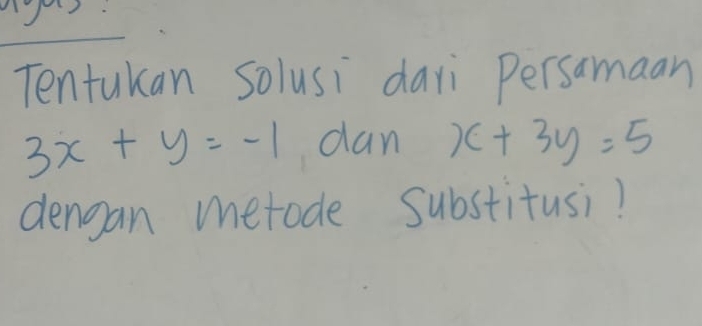 Tentukan Solusi dari Persamaan
3x + y = -1 dan x + 3y = 5
dengan metode Substitusi!